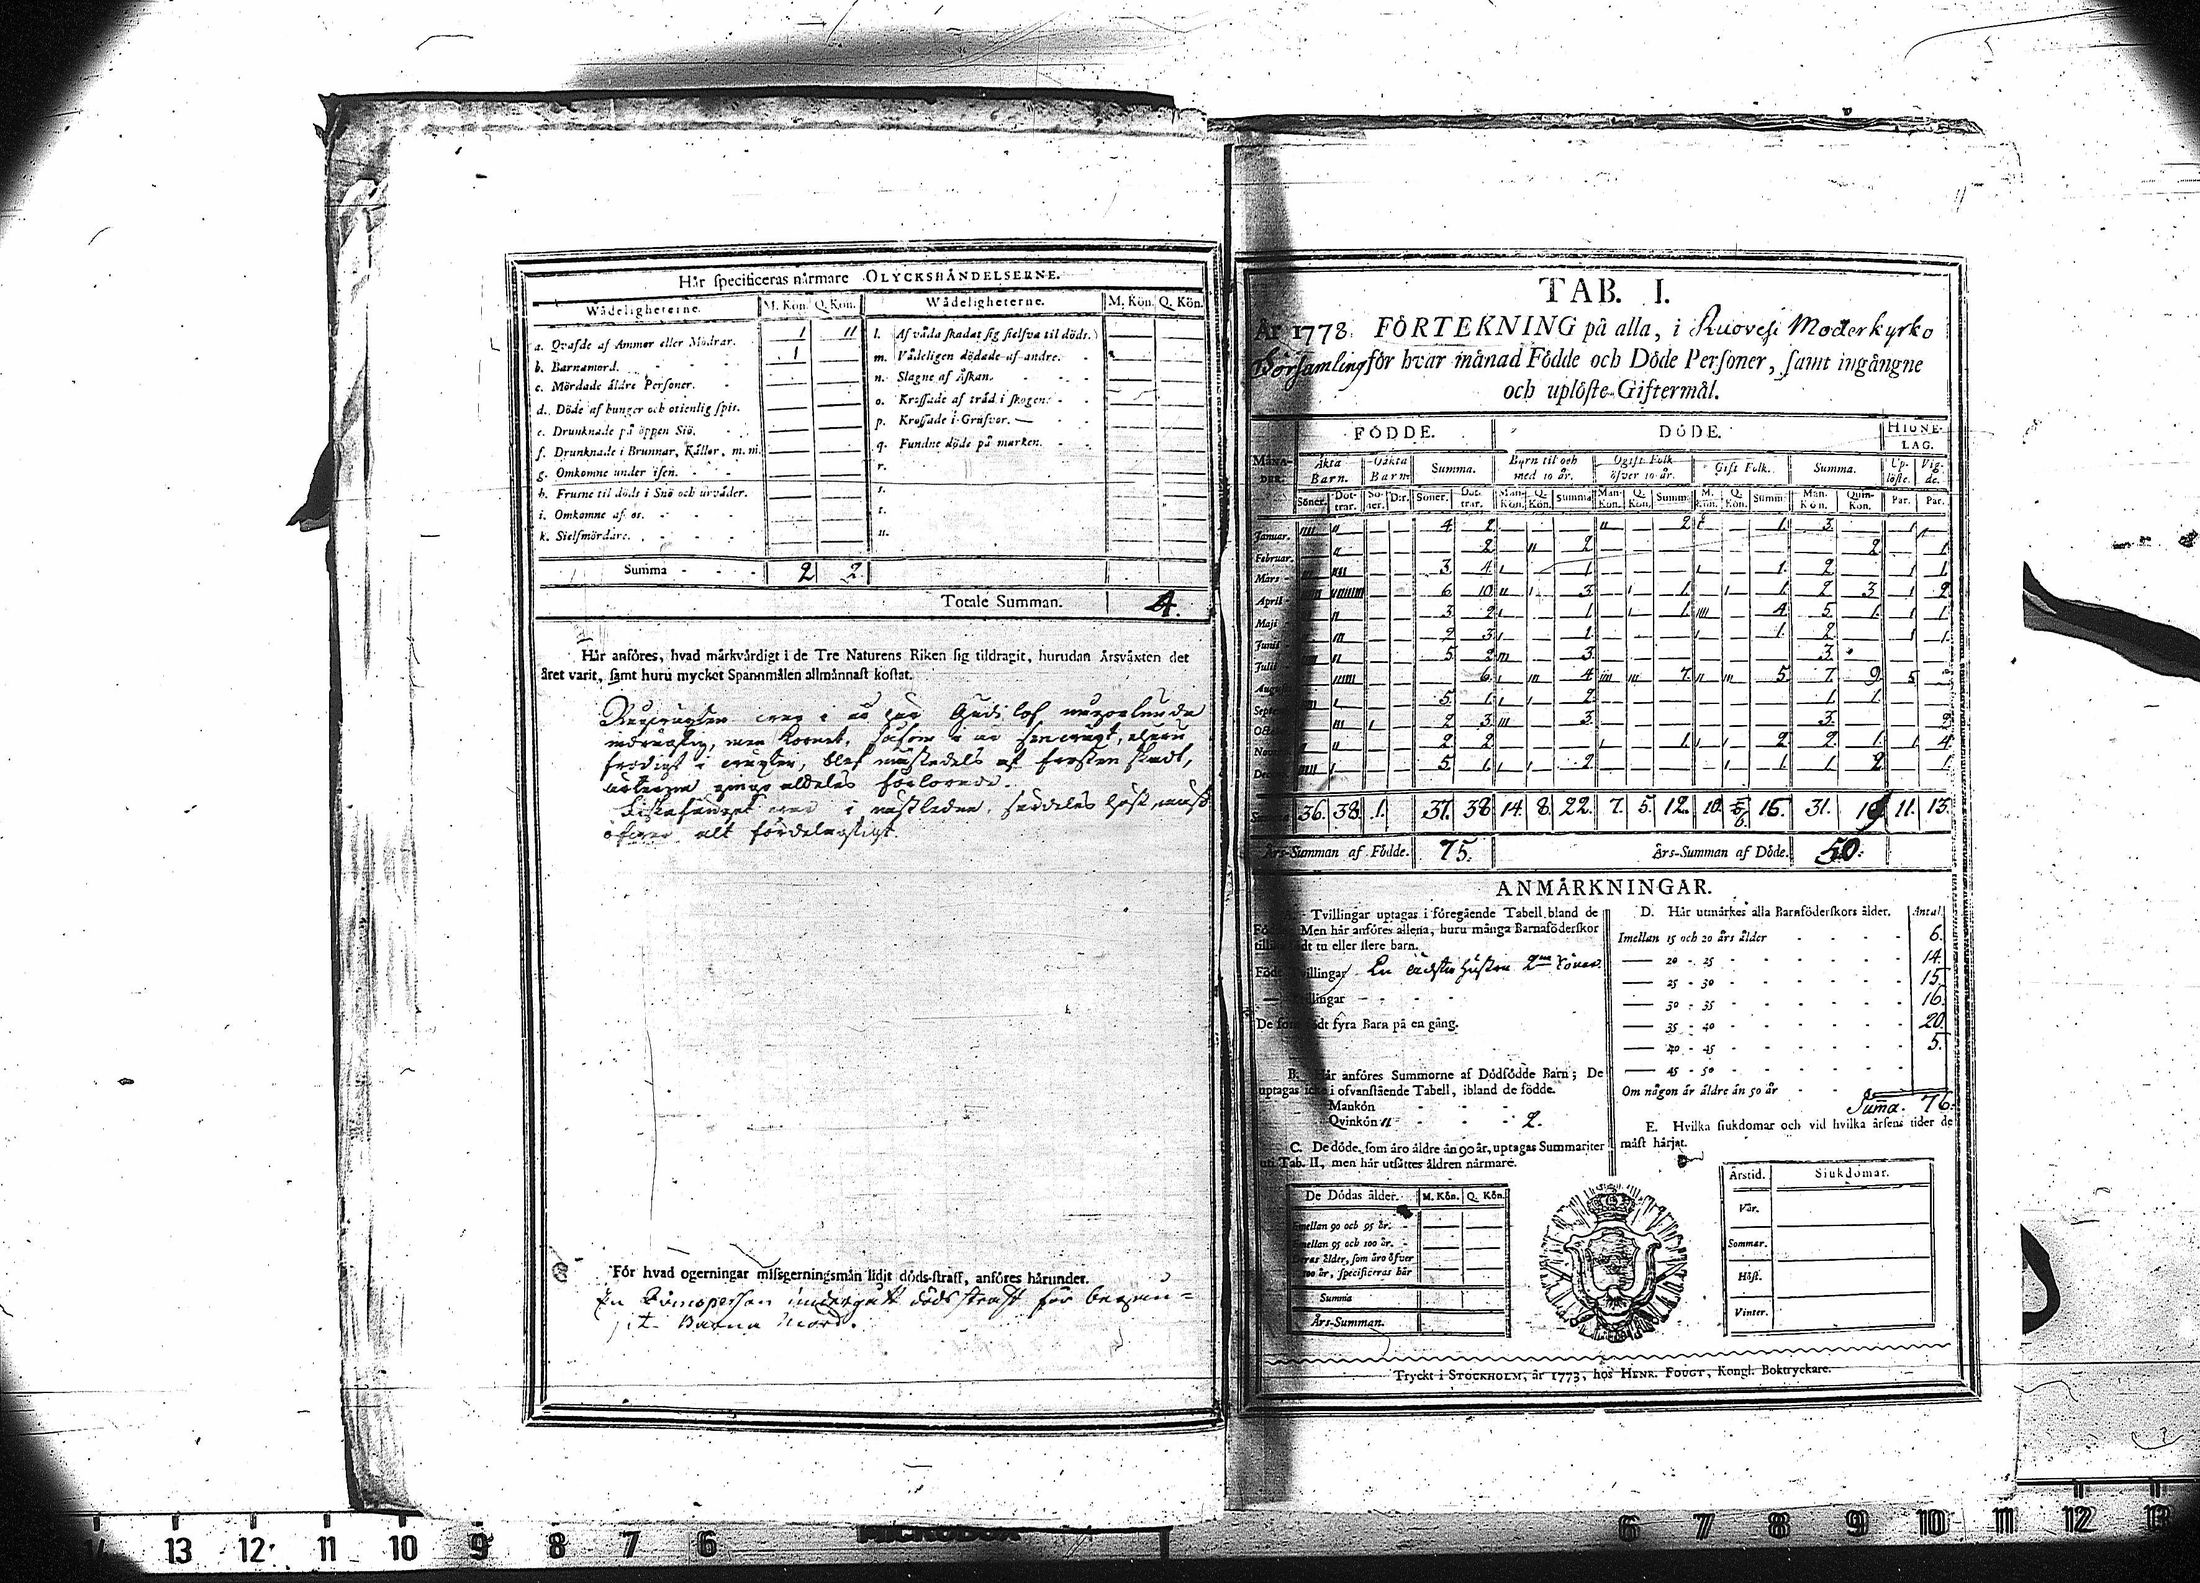 Här specificeras närmare OLYCKSHÄNDELSERNE.
Wådeligheterne. M. Kön. Q. Kön. Wådeligheterne. M. Kön. Q. Kön.
a. Qvafde af Ammor eller Mödrar. 1 11 l. Af våda skadat sig sielfva til döds.
b. Barnamord. 1 m. Vådeligen dödade af andre.
c. Mördade äldre Personer. n. Slagne af Åskan.
d. Döde af hunger och otienlig spis. o. Krossade af träd i skogen.
e. Drunknade på öppen Siö. p. Krossade i Grufvor.
f. Drunknade i Brunnar, Källor, m. m. q. Fundne döde på marken.
g. Omkomne under isen. r.
h. Frusne til döds i Snö och urväder. s.
i. Omkomne af os. t.
k. Sielfmördare. u.
Summa 2 2
Totale Summan. 4.
Här anföres, hvad märkvärdigt i de Tre Naturens Riken sig tildragit, hurudan Årsväxten det
året varit, samt huru mycket Spannmålen allmännast kostat.
i Gudi lof
men Kornet, såsom
i af frosten skadt,
aldeles förlorade.
Fiskafänget war i
öfwer alt fördelagtigt.
För hvad ogerningar missgerningsmän lidit döds-straff, anföres härunder.
En Qvinsperson undergått dödsstraff för begån=
git Barna Mord.
TAB. I.
År 1778. FÖRTEKNING på alla, i Ruovesi Moderkyrko
Församling för hvar månad Födde och Döde Personer, samt ingångne
och uplöste Giftermål.
FÖDDE. DÖDE. HIONELAG.
MÅNADER. Äkta Barn. Oäkta Barn Summa. Barn til och med 10 år. Ogift Folk öfver 10 år. Gift Folk. Summa. Uplöste. Vigde.
Söner. Dottrar. Söner. Dr. Söner. Dottrar. Man-Kön. Q. Kön. Summa Man-Kön. Q. Kön. Summa M. Kön. Q. Kön. Summa Man-Kön. Quin-Kön. Par. Par.
Januar. 4 2 2 1 3 1
Februar. 2 2 2 1
Mars 3 4 1 1 2 1 1
April 6 10 3 1 1 2 3 1 2
Maji 3 2 1 1 4 5 1 1 1
Junii 2 3 1 1 2 1 1
Julii 5 2 3 3
August 6 4 7 5 7 9 5
Septem 5 1 2 1 1
Octo 2 3 3 3 2
Nove 2 2 1 2 2 1 1 4
Decem 5 1 2 1 1 2 1
Summa 36. 38. 1. 37. 38 14. 8. 22. 7. 5. 12. 10. 6. 16. 31. 19 11. 13.
Års-Summan af Födde. 75. Års-Summan af Döde. 50.
ANMÄRKNINGAR.
A. Tvillingar uptagas i föregående Tabell bland de
Födde. Men här anföres allena, huru många Barnaföderskor
tillika födt tu eller flere barn.
Födt Tvillingar En 2ne Söner.
Trillingar
De som födt fyra Barn på en gång.
B. Här anföres Summorne af Dödfödde Barn; De
uptagas icke i ofvanstående Tabell, ibland de födde.
Mankön
Qvinkön 11 2.
C. De döde, som äro äldre än 90 år, uptagas Summariter
uti Tab. II, men här utsättes åldren närmare.
De Dödas ålder. M. Kön. Q. Kön.
Emellan 90 och 95 år.
Emellan 95 och 100 år.
Deras ålder, som äro öfver
100 år, specificeras här
Summa
Års-Summan.
D. Här utmärkes alla Barnföderskors ålder. Antal
Imellan 15 och 20 års ålder 6.
20 - 25 14.
25 - 30 15.
30 - 35 16.
35 - 40 20.
40 - 45 5.
45 - 50
Om någon är äldre än 50 år
Suma. 76.
E. Hvilka siukdomar och vid hvilka årsens tider de
mäst härjat.
Årstid. Siukdomar.
Vår.
Sommar.
Höst.
Vinter.
Tryckt i STOCKHOLM, år 1773, hos HENR. FOUGT, Kongl. Boktryckare.
13 12 11 10 9 8 7 6 MICROBOX 6 7 8 9 10 11 12 13